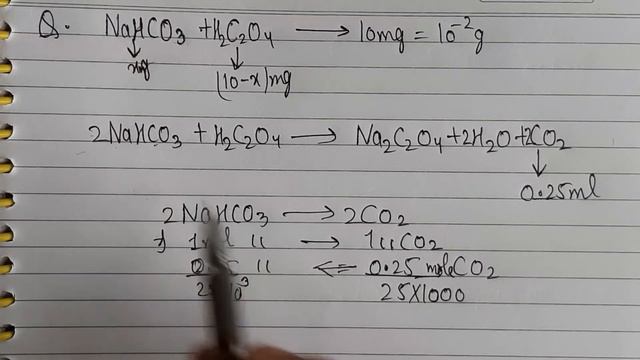 Q. NaHCO3 + H2C2O4 → 10mg = 10⁻²g
(10-x)mg
2NaHCO3 + H2C2O4 → Na2C2O4 + 2H2O + 2CO2
0.25ml
2NaHCO3 → 2CO2
→ 1 CO2
⇐ 0.25 mole CO2
25X1000